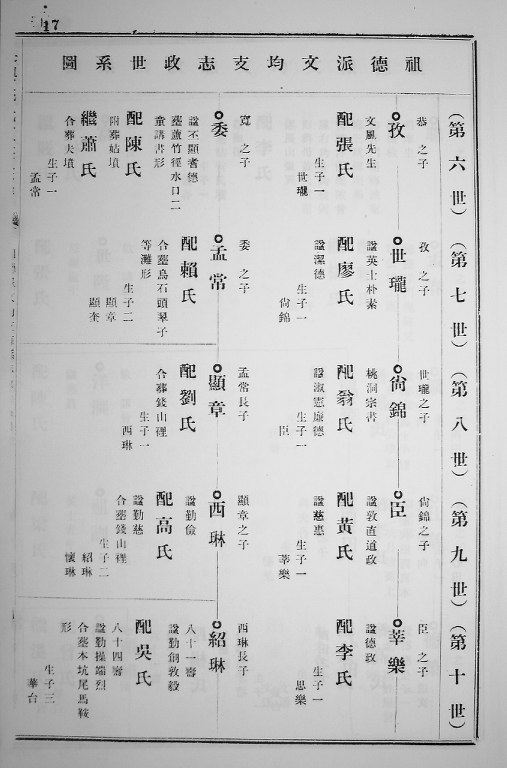 17
祖德派文均支志政世系圖
(第六世)
(第七世)
(第八世)
(第九世)
(第十世)
恭之子
孜
文風先生
配張氏
生子一
世瓏
寬之子
委
諡丕顯耆德
墓蘆竹徑水口二
童講書形
配陳氏
附葬姑墳
繼蕭氏
合葬夫墳
生子一
孟常
孜之子
世瓏
諡英士朴素
配廖氏
諡潔德
生子一
尙錦
委之子
孟常
配賴氏
合墓烏石頭翠子
等灘形
生子二
顯章
顯奎
世瓏之子
尙錦
桃洞宗書
配翁氏
諡淑憲廉德
生子一
臣
孟常長子
顯章
配劉氏
合葬錢山裡
生子一
西琳
尙錦之子
臣
諡敦直道政
配黃氏
諡慈惠
生子一
莘樂
顯章之子
西琳
諡勤儉
配高氏
諡勤慈
合墓錢山裡
生子二
紹琳
懷琳
臣之子
莘樂
諡德政
配李氏
生子一
思樂
西琳長子
紹琳
八十一審
諡勤創敦毅
配吳氏
八十四審
諡勤操端烈
合墓本坑尾馬鞍
形
生子三
華台